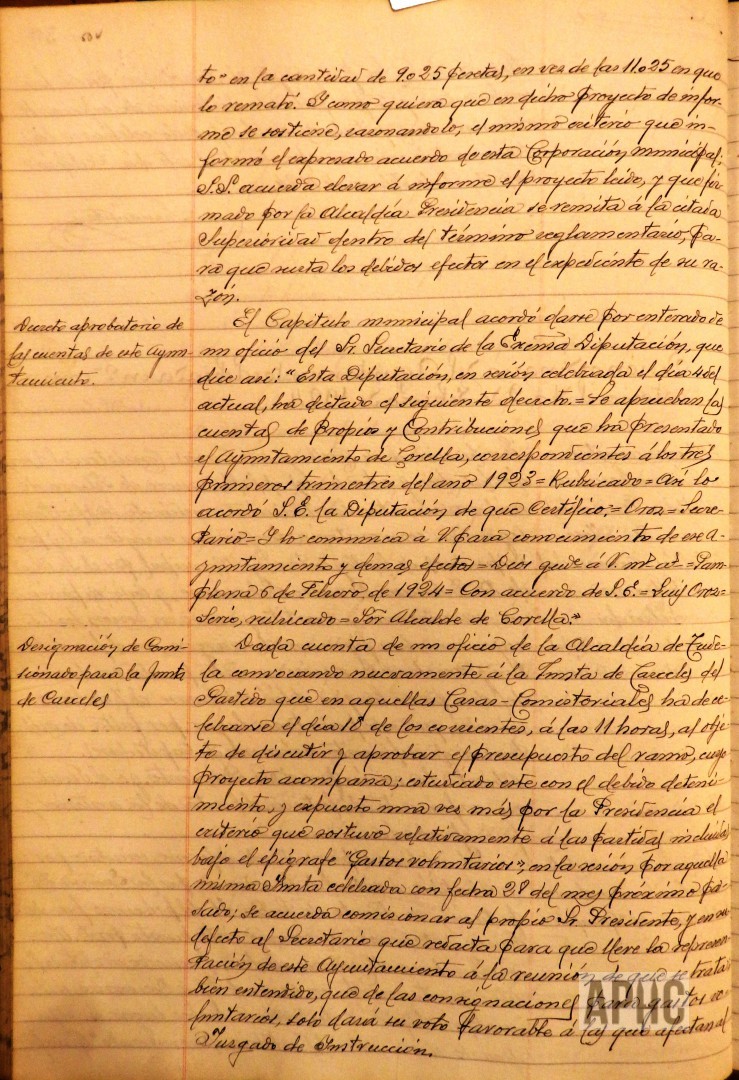 to" en la cantidad de 9.025 pesetas, en vez de las 11.025 en que
lo remató. Y como quiera que en dicho proyecto de infor-
me se sostiene, razonandolo, el mismo criterio que in-
formó el expresado acuerdo de esta Corporación municipal;
S.Sª acuerda elevar á informe el proyecto leido, y que fir-
mado por la Alcaldía Presidencia se remita á la citada
Superioridad dentro del término reglamentario, pa-
ra que surta los debidos efectos en el expediente de su ra-
zón.
Decreto aprobatorio de
las cuentas de este Ayun-
tamiento.
El Capítulo municipal acordó darse por enterado de
un oficio del Sr. Secretario de la Excma Diputación, que
dice así: "Esta Diputación, en sesión celebrada el día 4 del
actual, ha dictado el siguiente decreto.= Se aprueban las
cuentas de Propios y Contribuciones que ha presentado
el Ayuntamiento de Corella, correspondientes á los tres
primeros trimestres del año 1923= Rubricado= Así lo
acordó S.E. la Diputación de que Certifico:= Oroz= Secre-
tario= Y lo comunica á V. para conocimiento de ese A-
yuntamiento y demas efectos= Dios gue á V. ms as= Pam-
plona 6 de Febrero de 1924= Con acuerdo de S.E.= Luis Oroz=
Serio, rubricado= Sor Alcalde de Corella."
Designación de Comi-
sionado para la Junta
de Carceles
Dada cuenta de un oficio de la Alcaldía de Tude-
la convocando nuevamente á la Junta de Carceles del
Partido que en aquellas Casas-Consistoriales ha de ce-
lebrarse el día 18 de los corrientes, á las 11 horas, al obje-
to de discutir y aprobar el presupuesto del ramo, cuyo
proyecto acompaña; estudiado este con el debido deteni-
miento, y expuesto una vez más por la Presidencia el
criterio que sostuvo relativamente á las partidas incluidas
bajo el epígrafe "Gastos voluntarios", en la sesión por aquella
misma Junta celebrada con fecha 28 del mes próximo pa-
sado; se acuerda comisionar al propio Sr. Presidente, y en su
defecto al Secretario que redacta para que lleve la represen-
tación de este Ayuntamiento á la reunión de que se trata:
bien entendido, que de las consignaciones para gastos vo-
luntarios, solo dará su voto favorable á las que afectan al
Juzgado de Instrucción.
APHC